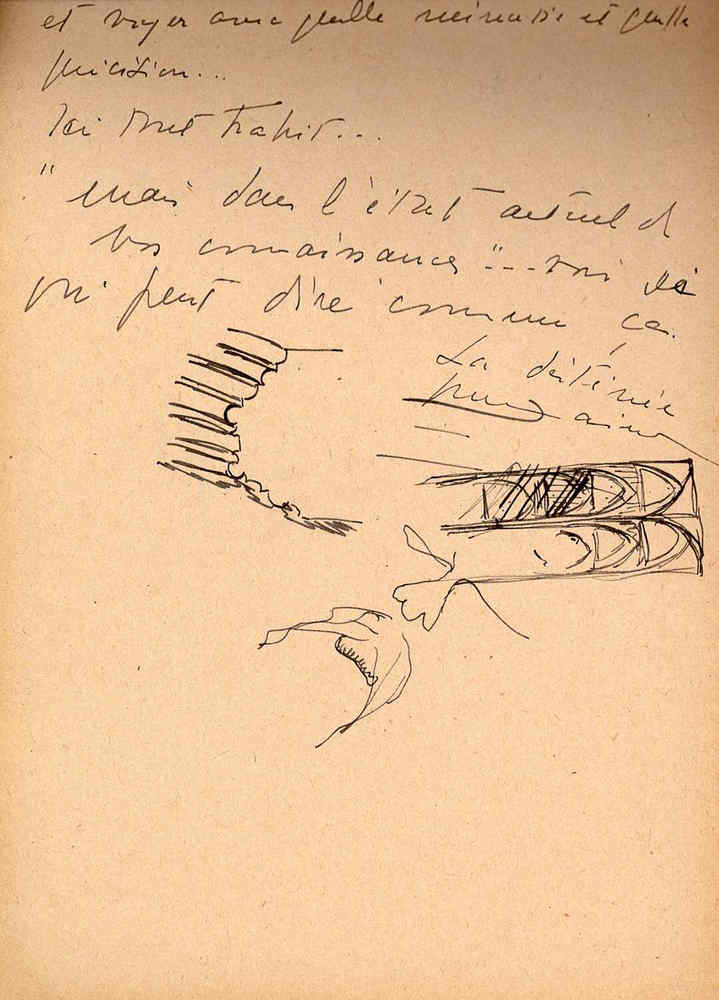 et voyez avec quelle minutie et quelle
précision...
Ici tout trahit...
"mais dans l'état actuel de
vos connaissances"... qui
qui peut dire comme ça.
La destinée